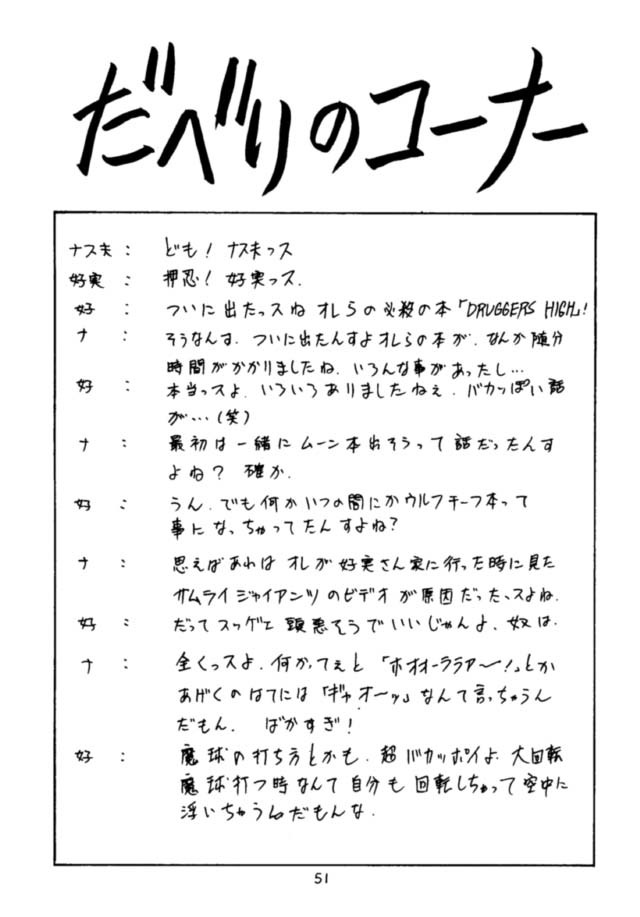 だべりのコーナー
ナス夫： ども！ナス夫っス
好実： 押忍！好実っス．
好： ついに出たっスね オレらの必殺の本「DRUGGERS HIGH」！
ナ： そうなんす．ついに出たんすよオレらの本が．なんか随分
時間がかかりましたね．いろんな事があったし…
好： 本当っスよ．いろいろありましたねぇ．バカっぽい話
が…（笑）
ナ： 最初は一緒にムーン本出そうって話だったんす
よね？ 確か．
好： うん．でも何かいつの間にかウルフチーフ本って
事になっちゃってたんすよね？
ナ： 思えばあれは オレが好実さん家に行った時に見た
サムライジャイアンツのビデオが原因だったっスよね．
好： だってスッゲェ頭悪そうでいいじゃんよ．奴は．
ナ： 全くっスよ．何かってぇと「ホオオーララアー！」とか
あげくのはてには「ギャオーッ」なんて言っちゃうん
だもん． ばかすぎ！
好： 魔球の打ち方とかも．超バカッポイよ．大回転
魔球打つ時なんて自分も回転しちゃって空中に
浮いちゃうんだもんな．
51